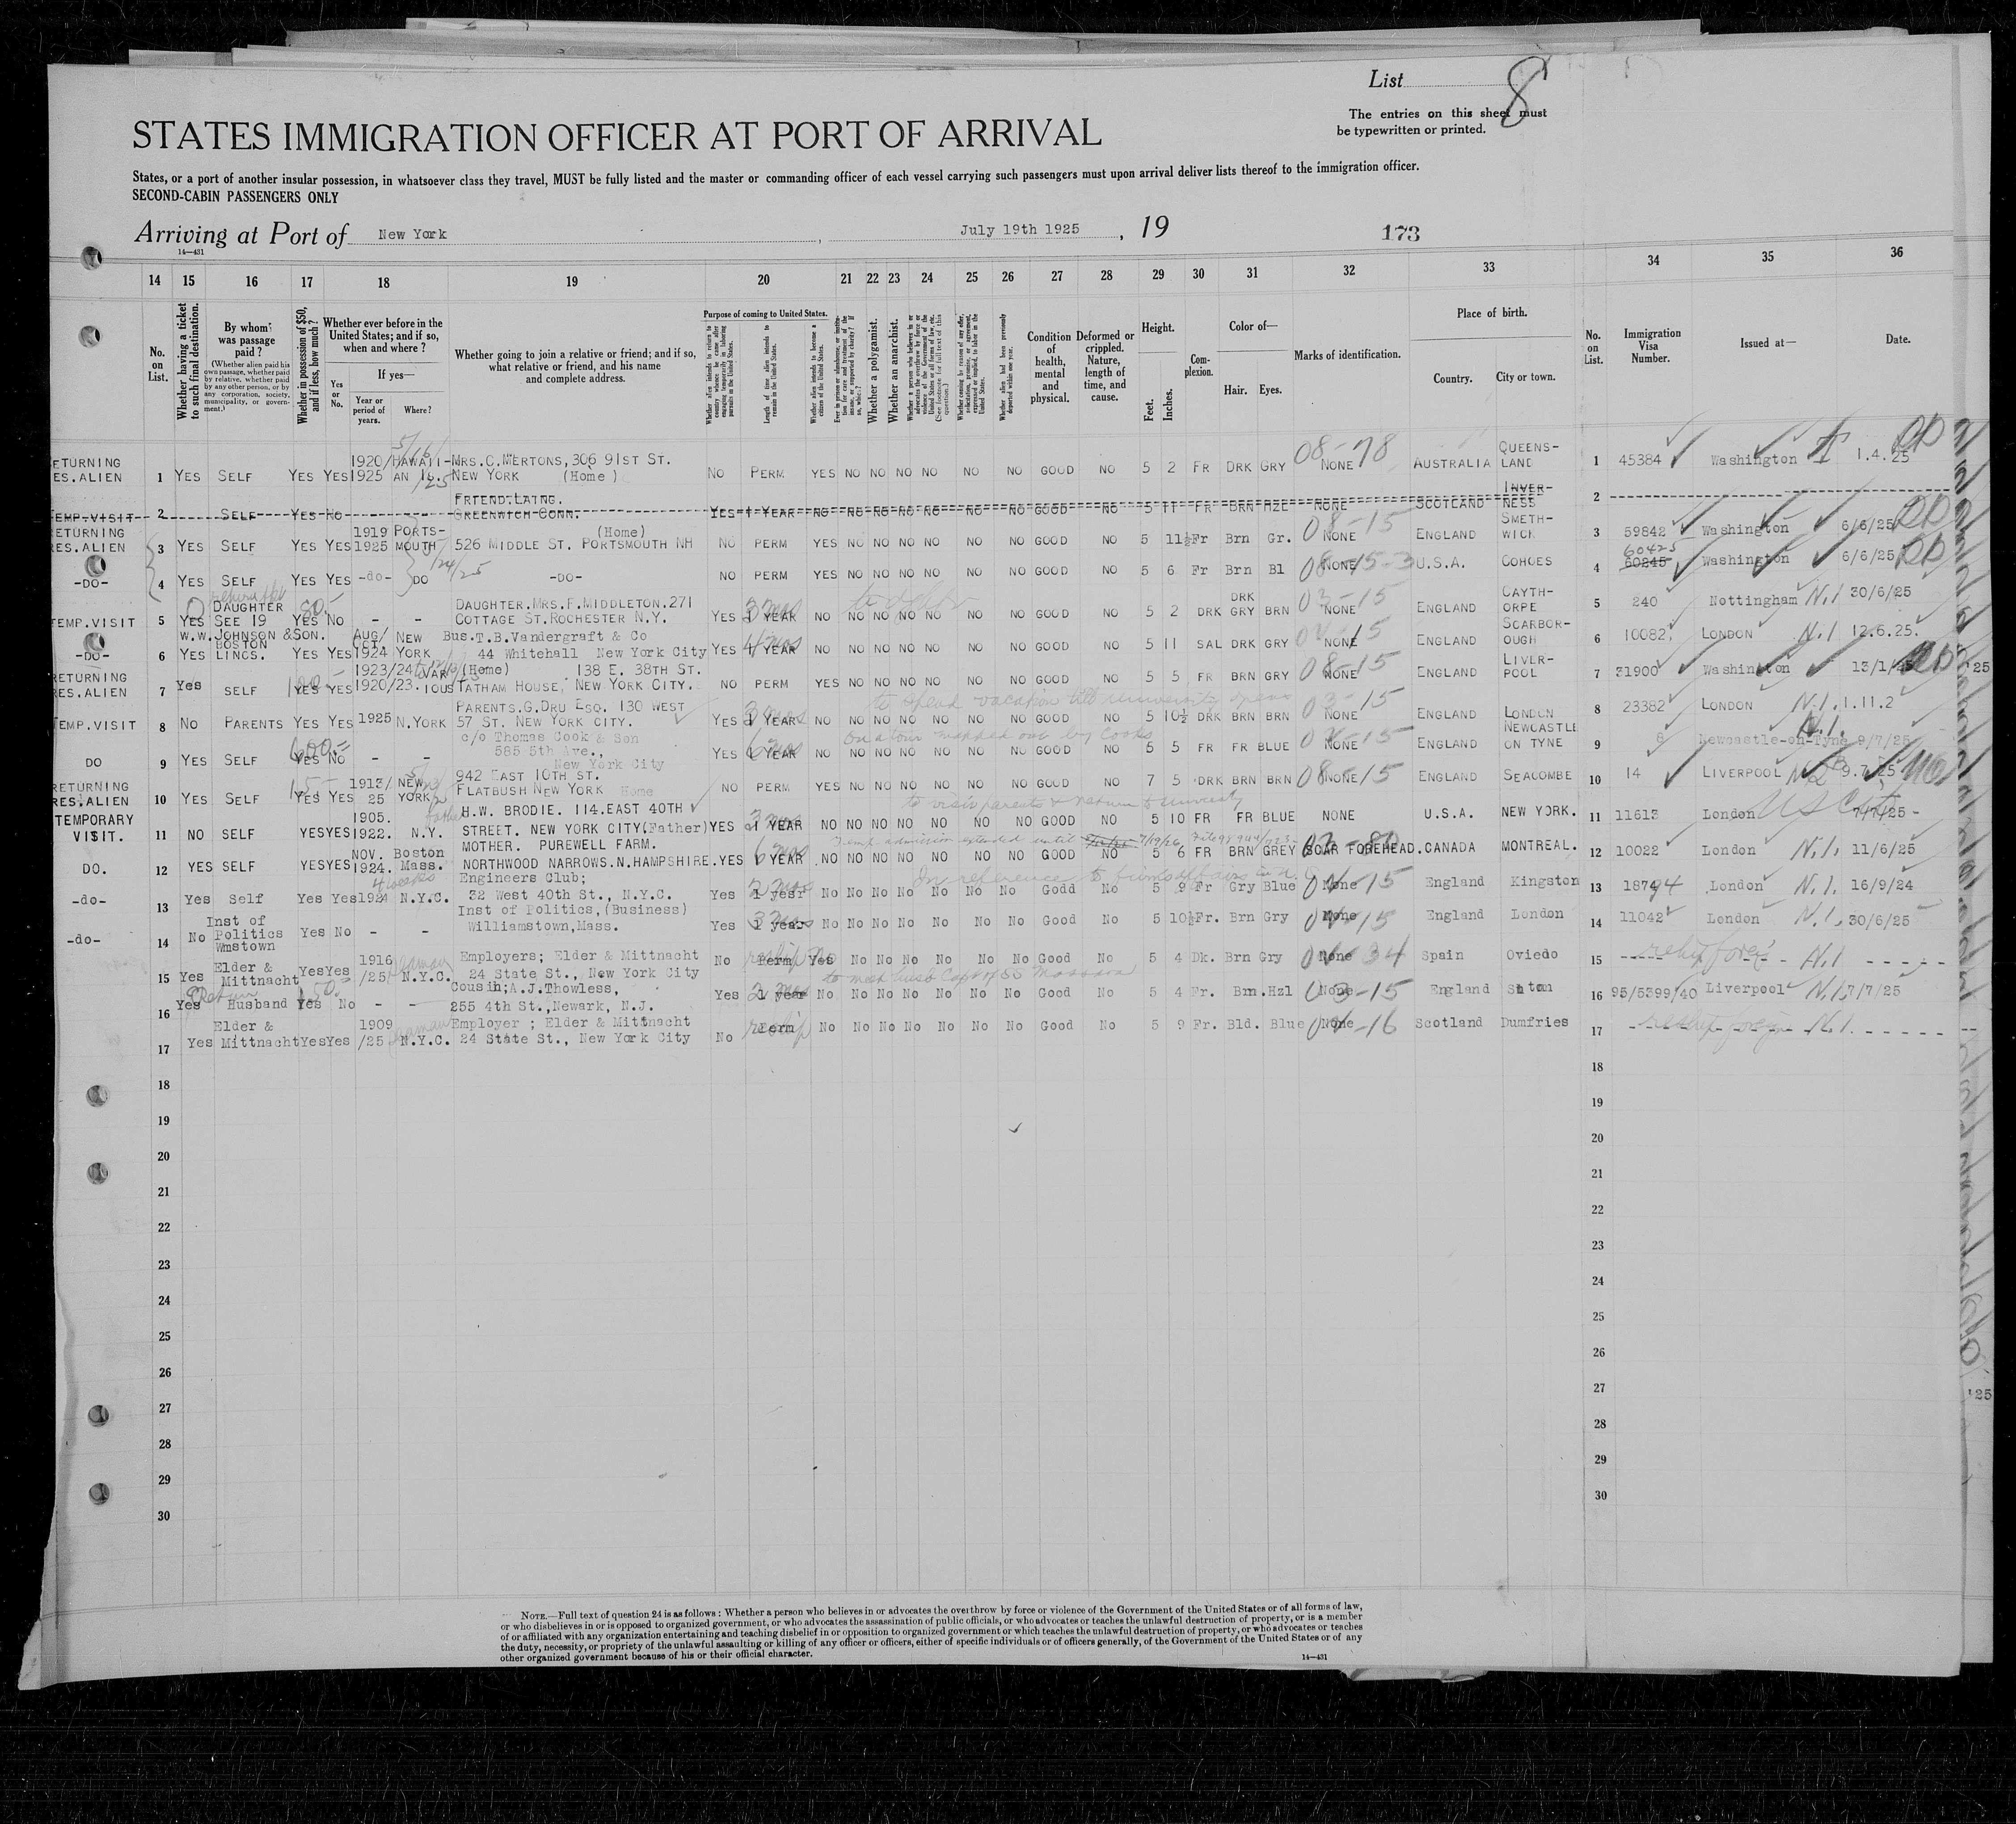 List 8
The entries on this sheet must
be typewritten or printed.
STATES IMMIGRATION OFFICER AT PORT OF ARRIVAL
States, or a port of another insular possession, in whatsoever class they travel, MUST be fully listed and the master or commanding officer of each vessel carrying such passengers must upon arrival deliver lists thereof to the immigration officer.
SECOND-CABIN PASSENGERS ONLY
Arriving at Port of New York, July 19th 1925, 19 173
14—431
14 15 16 17 18 19 20 21 22 23 24 25 26 27 28 29 30 31 32 33 34 35 36
No. on List.
Whether having a ticket to such final destination.
By whom was passage paid?
(Whether alien paid his own passage, whether paid by relative, whether paid by any other person, or by any corporation, society, municipality, or government.)
Whether in possession of $50, and if less, how much?
Whether ever before in the United States; and if so, when and where?
Yes or No.
If yes—
Year or period of years.
Where?
Whether going to join a relative or friend; and if so, what relative or friend, and his name and complete address.
Purpose of coming to United States.
Whether alien intends to return to country whence he came after engaging temporarily in laboring pursuits in the United States.
Length of time alien intends to remain in the United States.
Whether alien intends to become a citizen of the United States.
Ever in prison or almshouse, or institution for care and treatment of the insane, or supported by charity? If so, which?
Whether a polygamist.
Whether an anarchist.
Condition of health, mental and physical.
Deformed or crippled. Nature, length of time, and cause.
Height.
Feet. Inches.
Complexion.
Color of—
Hair. Eyes.
Marks of identification.
Place of birth.
Country. City or town.
No. on List.
Immigration Visa Number.
Issued at—
Date.
ETURNING ES.ALIEN 1 YES SELF YES YES 1920/1925 HAWAII-AN IS. MRS.C.MERTONS,306 91ST ST. NEW YORK (Home) NO PERM YES NO NO NO NO NO NO GOOD NO 5 2 FR DRK GRY NONE 08-78 AUSTRALIA QUEENS-LAND 1 45384 Washington 1.4.25
EMP.VISIT 2 SELF YES NO FRIEND.LAING. GREENWICH CONN. YES 1 YEAR NO NO NO NO NO NO GOOD NO 5 11 FR BRN HZL NONE SCOTLAND INVER-NESS 2
ETURNING ES.ALIEN 3 YES SELF YES YES 1919 1925 PORTS-MOUTH (Home) 526 MIDDLE ST. PORTSMOUTH NH NO PERM YES NO NO NO NO NO NO GOOD NO 5 11½ Fr Brn Gr. NONE 08-15 ENGLAND SMETH-WICK 3 59842 Washington 6/6/25
-DO- 4 YES SELF YES YES -do- DO -DO- NO PERM YES NO NO NO NO NO NO GOOD NO 5 6 Fr Brn Bl NONE 08-15-3 U.S.A. COHOES 4 60245 60425 Washington 6/6/25
TEMP.VISIT 5 YES DAUGHTER SEE 19 YES NO 80.- - - DAUGHTER.MRS.F.MIDDLETON.271 COTTAGE ST.ROCHESTER N.Y. YES 1 YEAR 3 mos NO NO NO NO NO NO NO GOOD NO 5 2 DRK DRK GRY BRN NONE 03-15 ENGLAND CAYTH-ORPE 5 240 Nottingham N.I 30/6/25
-DO- 6 YES W.W.JOHNSON &SON. BOSTON LINCS. YES YES AUG/OCT. 1924 NEW YORK Bus.T.B.Vandergraft & Co 44 Whitehall New York City YES 1 YEAR 4 mos NO NO NO NO NO NO NO GOOD NO 5 11 SAL DRK GRY NONE ENGLAND SCARBOR-OUGH 6 10082 LONDON N.I 12.6.25.
RETURNING RES.ALIEN 7 Yes SELF YES YES 100 1923/24 1920/23. VARIOUS (Home) 138 E. 38TH ST. TATHAM HOUSE, NEW YORK CITY. NO PERM YES NO NO NO NO NO NO GOOD NO 5 5 FR BRN GRY NONE 08-15 ENGLAND LIVER-POOL 7 31900 Washington 13/1/25
to spend vacation till university opens
TEMP.VISIT 8 NO PARENTS YES YES 1925 N.YORK PARENTS.G.DRU ESQ. 130 WEST 57 ST. NEW YORK CITY. YES 1 YEAR 3 mos NO NO NO NO NO NO NO GOOD NO 5 10½ DRK BRN BRN NONE 03-15 ENGLAND LONDON 8 23382 LONDON N.I. 1.11.2
on a tour mapped out by Cooks
DO 9 YES SELF YES NO 600.- - - c/o Thomas Cook & Son 585 5th Ave., New York City YES 1 YEAR 6 mos NO NO NO NO NO NO NO GOOD NO 5 5 FR FR BLUE NONE ENGLAND NEWCASTLE ON TYNE 9 8 Newcastle-on-Tyne N.I. 9/7/25
RETURNING RES.ALIEN 10 YES SELF YES YES 15- 1913/25 NEW YORK 942 EAST 10TH ST. FLATBUSH NEW YORK Home NO PERM YES NO NO NO NO NO NO GOOD NO 7 5 DRK BRN BRN NONE 08-15 ENGLAND SEACOMBE 10 14 LIVERPOOL 9.7.25
to visit parents & return to University
TEMPORARY VISIT. 11 NO SELF YES YES 1905. 1922. N.Y. father H.W. BRODIE. 114.EAST 40TH STREET. NEW YORK CITY(Father) YES 1 YEAR 3 mos NO NO NO NO NO NO NO GOOD NO 5 10 FR FR BLUE NONE U.S.A. NEW YORK. 11 11613 London US Cit 7/7/25-
Temp. admission extended until 7/19/26
DO. 12 YES SELF YES YES NOV. 1924. Boston Mass. MOTHER. PUREWELL FARM. NORTHWOOD NARROWS.N.HAMPSHIRE. YES 1 YEAR 6 mos NO NO NO NO NO NO NO GOOD NO 5 6 FR BRN GREY SCAR FOREHEAD. CANADA MONTREAL. 12 10022 London N.I. 11/6/25
-do- 13 Yes Self Yes Yes 1924 4 weeks N.Y.C. Engineers Club; 32 West 40th St., N.Y.C. Yes 1 year 2 mos No No No No No No No Godd No 5 9 Fr Gry Blue None England Kingston 13 18794 London N.I. 16/9/24
-do- 14 No Inst of Politics Wmstown Yes No - - Inst of Politics,(Business) Williamstown,Mass. Yes 1 year 3 mos No No No No No No No Good No 5 10½ Fr. Brn Gry None England London 14 11042 London N.I. 30/6/25
15 Yes Elder & Mittnacht Yes Yes 1916 /25 N.Y.C. Seaman Employers; Elder & Mittnacht 24 State St., New York City No Perm reship Yes No No No No No No No Good No 5 4 Dk. Brn Gry None Spain Oviedo 15 reship foreign N.I
to meet husb Capt of SS
16 Yes Return Husband Yes No 50- - - Cousin;A.J.Thowless, 255 4th St.,Newark, N.J. Yes 1 year 2 mos No No No No No No No Good No 5 4 Fr. Brn.Hzl None 03-15 England 16 95/5399/40 Liverpool N.I. 7/7/25
17 Yes Elder & Mittnacht Yes Yes 1909 /25 N.Y.C. Seaman Employer ; Elder & Mittnacht 24 State St., New York City No Perm reship No No No No No No No Good No 5 9 Fr. Bld. Blue None Scotland Dumfries 17 reship foreign N.I.
18 18
19 19
20 20
21 21
22 22
23 23
24 24
25 25
26 26
27 27
28 28
29 29
30 30
NOTE.—Full text of question 24 is as follows: Whether a person who believes in or advocates the overthrow by force or violence of the Government of the United States or of all forms of law,
or who disbelieves in or is opposed to organized government, or who advocates the assassination of public officials, or who advocates or teaches the unlawful destruction of property, or is a member
of or affiliated with any organization entertaining and teaching disbelief in or opposition to organized government or which teaches the unlawful destruction of property, or who advocates or teaches
the duty, necessity, or propriety of the unlawful assaulting or killing of any officer or officers, either of specific individuals or of officers generally, of the Government of the United States or of any
other organized government because of his or their official character.
14—431